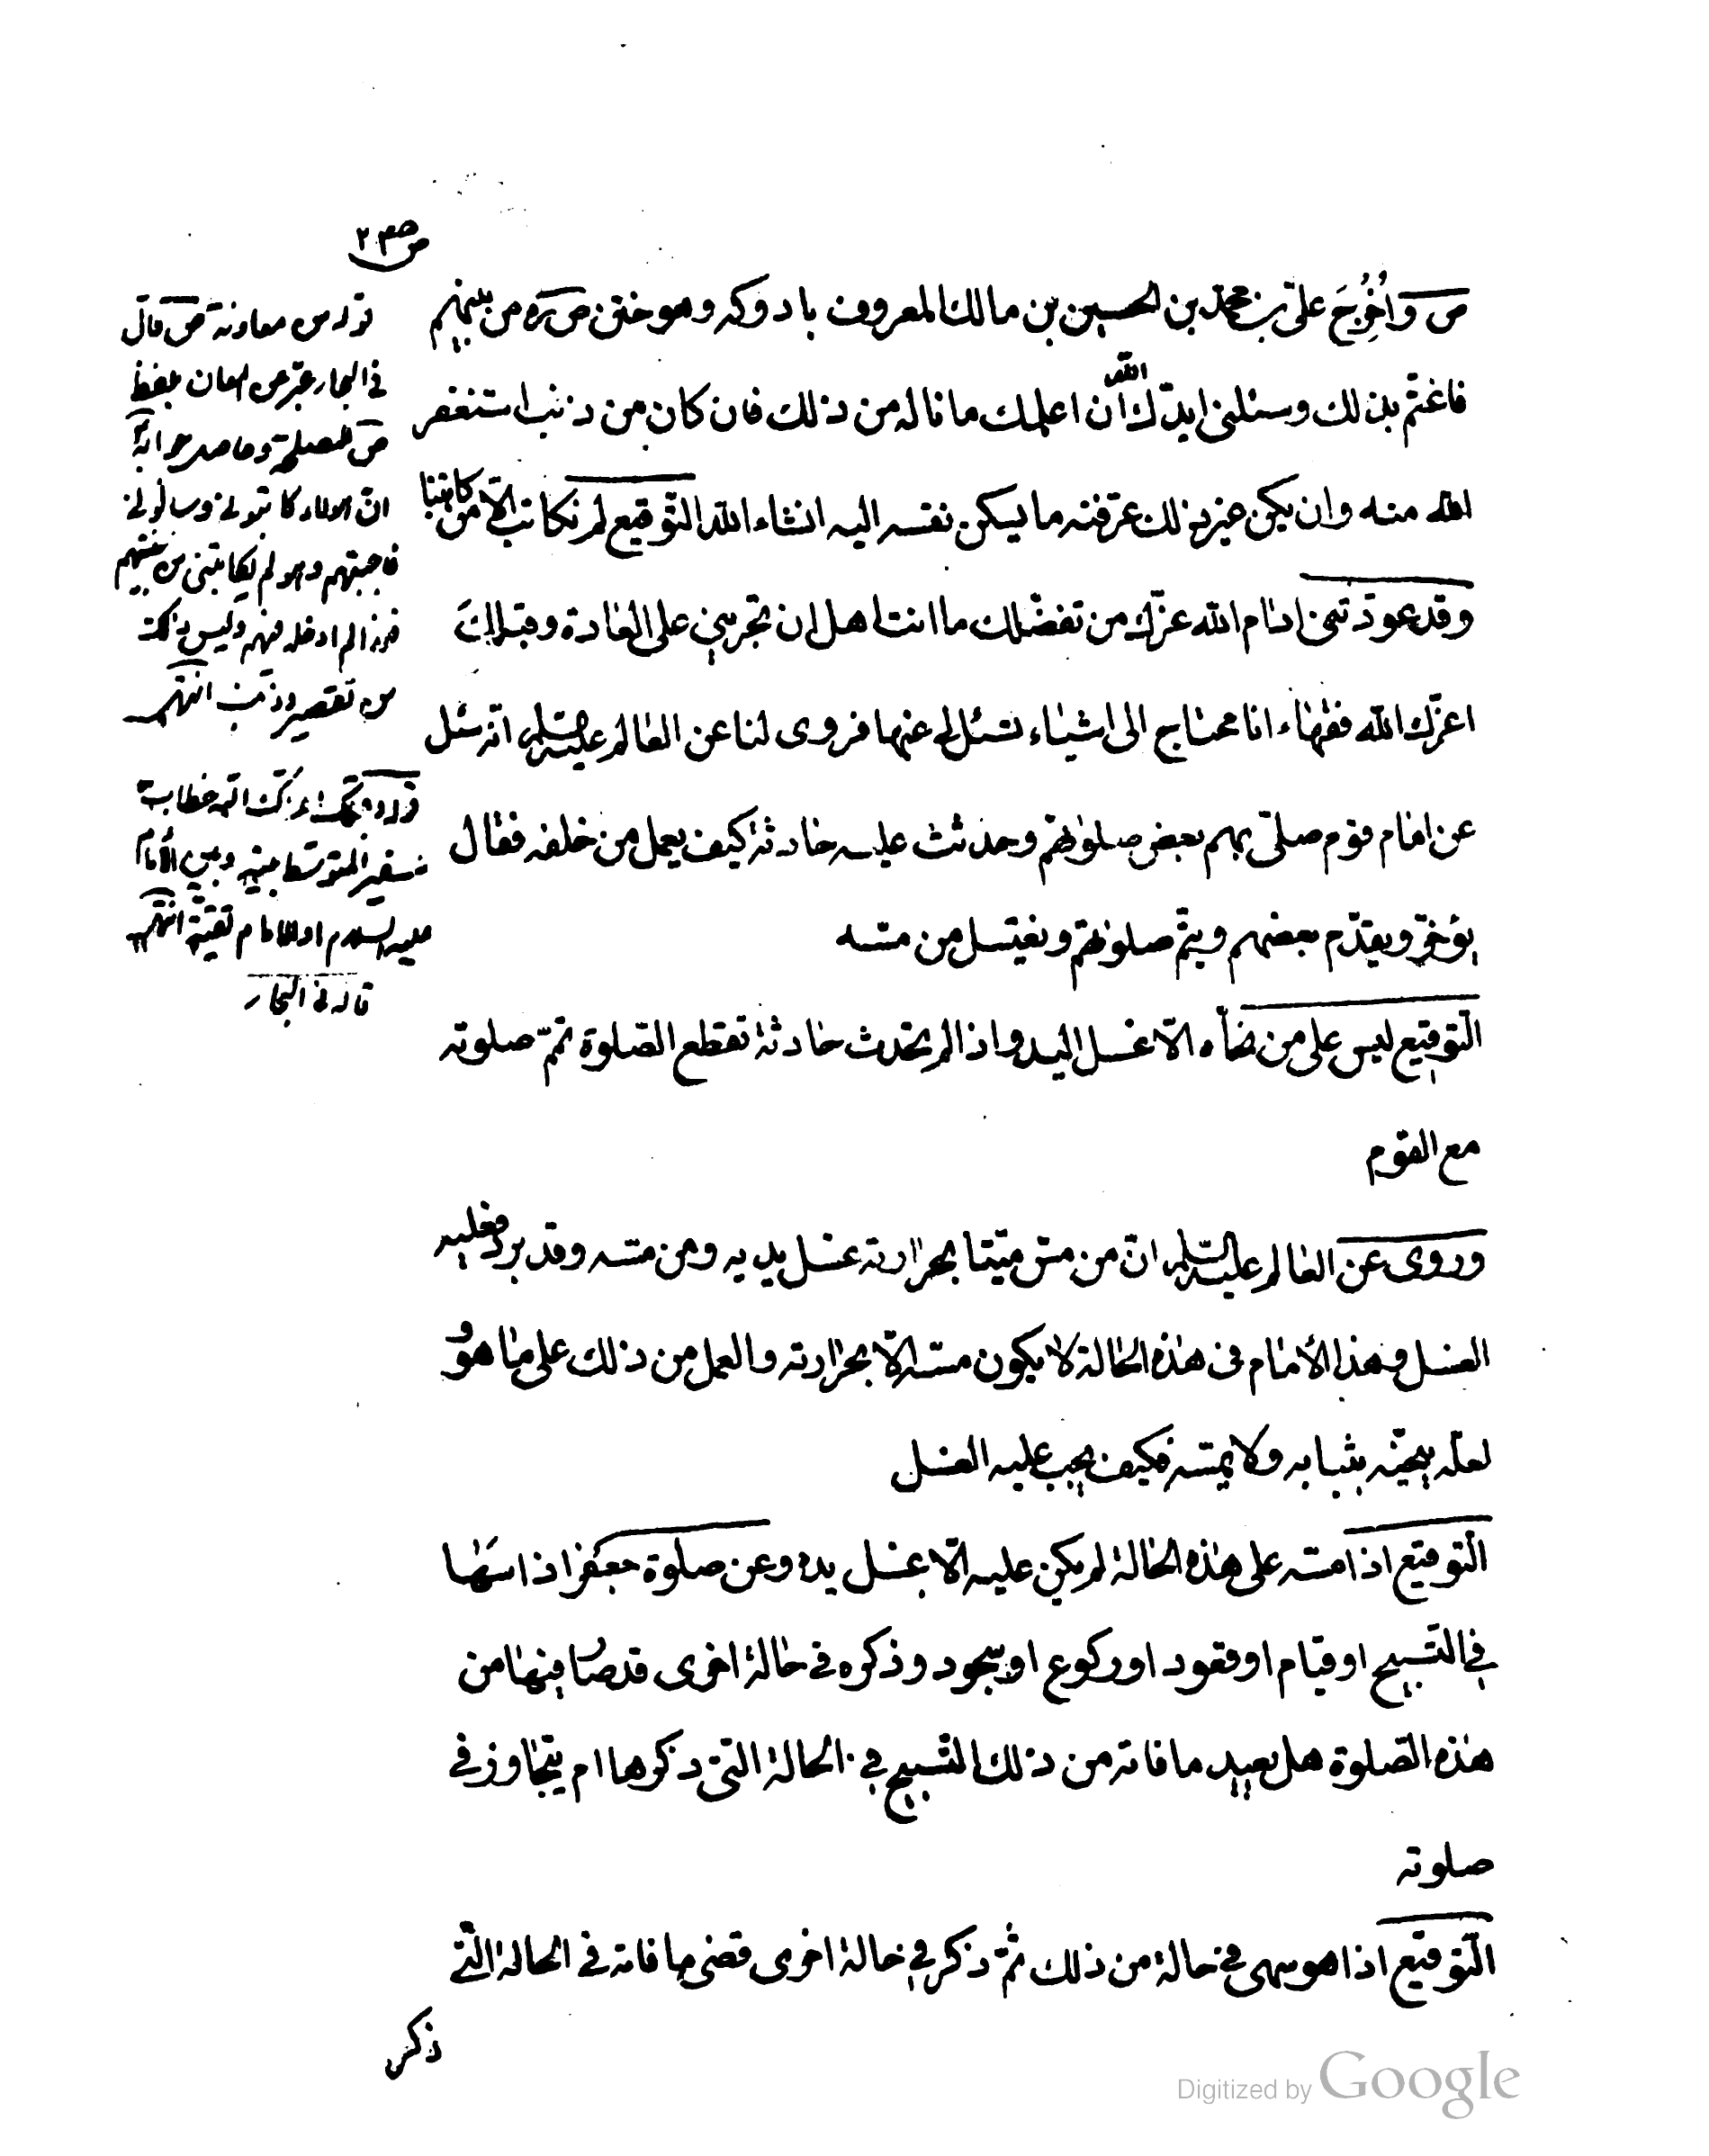 ص ٢٣٠
ص وَاُخْرِجَ علىّ بن محمّد بن الحسين بن مالك المعروف بادوكه وهو ختن ص ره من بينهم
فاغتمّ بذلك وسئلنى ايدّك الله ان اعلمك ما ناله من ذلك فان كان من ذنب استغفر
الله منه وان يكن غير ذلك عرّفته ما يسكن نفسه اليه انشاء الله التّوقيع لم نكاتب الّا من كاتبنا
وقد عوّدتنى ادام الله عزّك من تفضّلك ما انت اهل ان تجرينى على العادة وقبلك
اعزّك الله فقهاء انا محتاج الى اشياء تسئل لى عنها فروى لنا عن العالم عليه السّلم انّه سئل
عن امام قوم صلّى بهم بعض صلوتهم وحدثت عليه حادثة كيف يعمل من خلفه فقال
يؤخّر ويقدّم بعضهم ويتمّ صلوتهم ويغتسل من مسّه
التّوقيع ليس على من نحّاه الّا غسل اليد واذا لم يحدث حادثة تقطع الصّلوة تمّم صلوته
مع القوم
وروى عن العالم عليه السّلم انّ من مسّ ميّتا بحرارته غسل يديه ومن مسّه وقد برد فعليه
الغسل وهذا الأمام فى هذه الحالة لا يكون مسّه الّا بحرارته والعمل من ذلك على ما هو
لعلّه ينحّيه بثيابه ولا يمسّه فكيف يجب عليه الغسل
التّوقيع اذا مسّه على هذه الحالة لم يكن عليه الّا غسل يده وعن صلوة جعفر اذا سَها
فى التّسبيح او قيام او قعود او ركوع او سجود وذكره فى حالة اخرى قد صار فيها من
هذه الصّلوة هل يعيد ما فاته من ذلك التّسبيح فى الحالة التى ذكرها ام يتجاوز فى
صلوته
التّوقيع اذا هو سهى فى حالة من ذلك ثمّ ذكر فى حالة اخرى قضى ما فاته فى الحالة الّتى
ذكر
قوله ص معاونة ص قال
فى البحار عبّر عن المعان بلفظ
ص للمصلحة وحاصل جوابه
انّ هؤلاء كاتبونى وسألونى
فاجبتهم وهو لم يكاتبنى من بينهم
فلذا لم ادخله فيهم وليس ذلك
من تقصير وذنب انتهى
خطاب
للسفير المتوسّط بينه وبين الأمام
عليه السلام او للامام تقيّة انتهى
قاله فى البحار
Digitized by Google